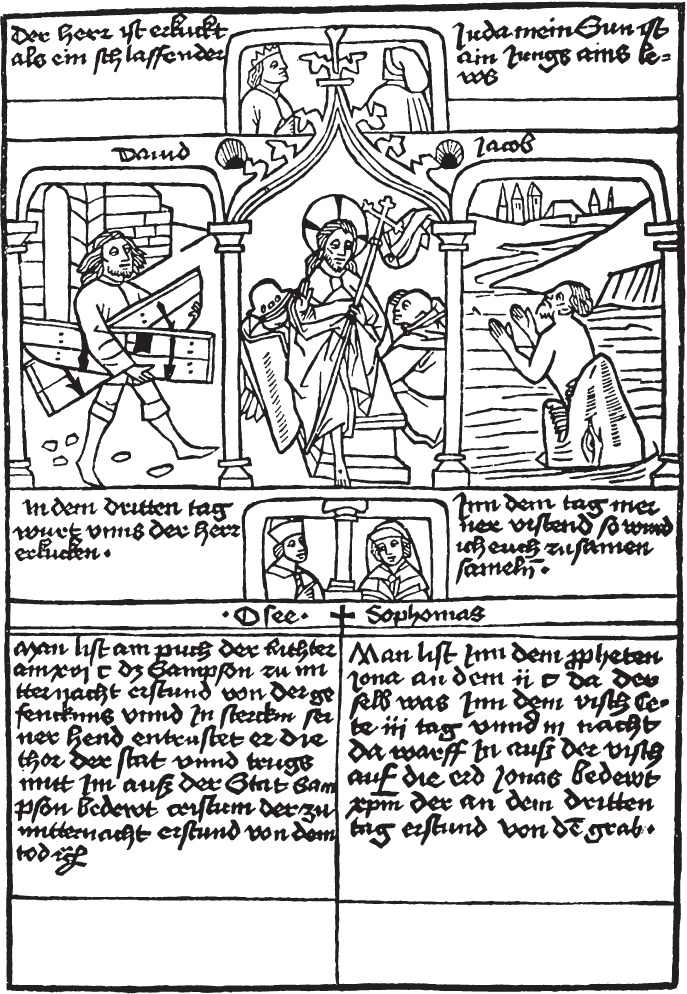 Der herr ist erkuckt
als ein schlaffender
Juda mein Sun ist
ain Jungs ains le=
ws
Dauid
Jacob
In dem dritten tag
wurt vnns der herr
erkucken.
Inn dem tag mei
ner vistend so wurd
ich euch zu samen
sameln.
Osee. + Sophonias
Man list am puch der Richter
am xvj c dz Sampson zu mi
tternacht erstund von der ge
fencknus vnnd In stercken sei
ner hend entrustet er die
thor der stat vnnd trugs
mitt Im auß der Stat Sam
pson bedewt cristum der zu
mitternacht erstund von dem
tod
Man list Inn dem ppheten
Jona an dem ij c da der
selb was Inn dem visch Le=
te iij tag vnnd iij nacht
da warff In auß der visch
auf die erd Jonas bedewt
xpm der an dem dritten
tag erstund von dē grab.